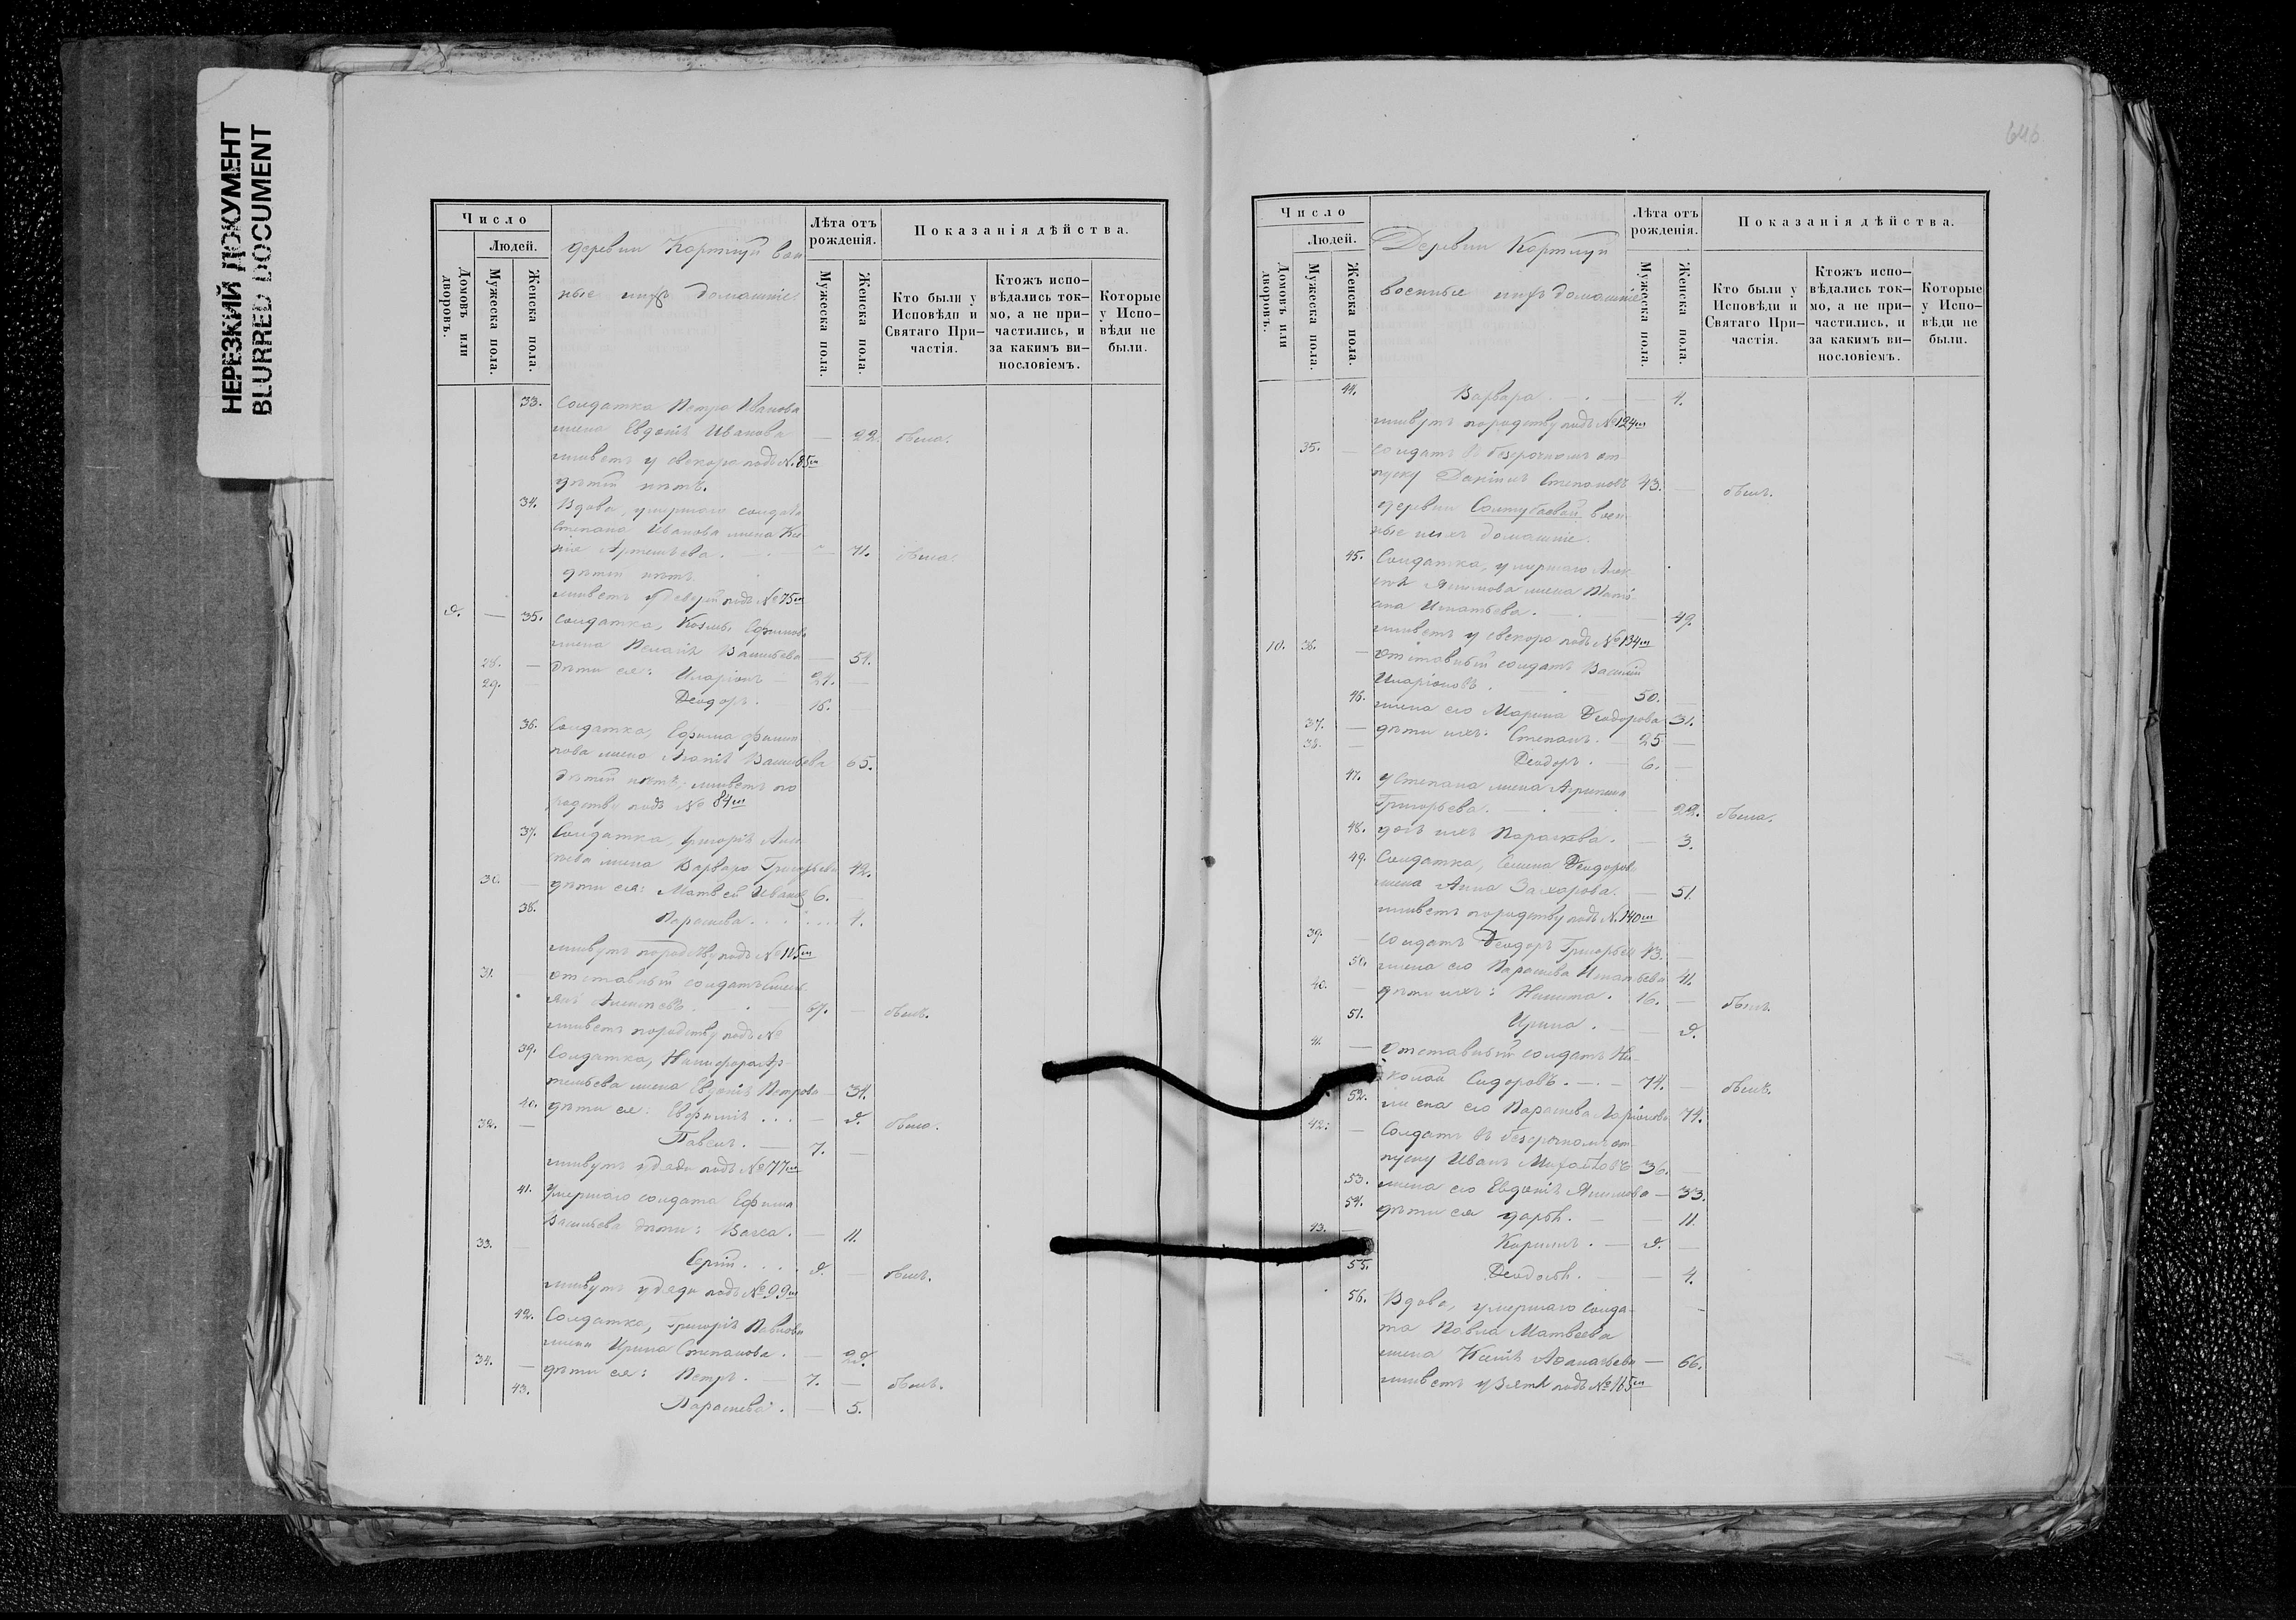 НЕРЕЗКИЙ ДОКУМЕНТ
BLURRED DOCUMENT
Число
Людей.
Домовъ или дворовъ.
Мужеска пола.
Женска пола.
деревни Кортлуй воен
ные ихъ домашніе.
Лѣта отъ рожденія.
Мужеска пола.
Женска пола.
Показанія дѣйства.
Кто были у Исповѣди и Святаго При-частія.
Ктожъ испо-вѣдались ток-мо, а не при-частились, и за какимъ ви-нословіемъ.
Которые у Испо-вѣди не были.
33. Солдатка Петра Иванова
жена Евдокія Иванова — 22. была.
живетъ у свекора подъ № 85м
дѣтей нѣтъ.
34. Вдова, умершаго солдата
Степана Иванова жена Ксе
нія Артемьева. — 71. была.
дѣтей нѣтъ.
живетъ подъ № 75м
9. — 35. Солдатка, Козьмы Ефимова
жена Пелагія Васильева — 54.
28. — дѣти ея: Иларіонъ — 24. —
29. — Ѳеодоръ. 16. —
36. Солдатка, Ефима Филип
пова жена Агапія Васильева 65.
дѣтей нѣтъ; живетъ по
родству подъ № 84м
37. Солдатка, Григорія Алек
сѣева жена Варвара Григорьева 42.
30. — дѣти ея: Матвей Ивановъ 6. —
38. Параскева. 4.
живутъ породству подъ № 115м
31. — отставный солдатъ
Алексѣевъ. — 67. — былъ.
живетъ породству подъ №
39. Солдатка, Никифора Ар
темьева жена Евдокія Петрова — 34.
40. дѣти ея: Евфимія . . . — 9. была.
32. — Павелъ. — 7. —
живутъ у дяди подъ № 77м
41. Умершаго солдата Ефима
Васильева дѣти: Васса. — 11.
33. — Сергій. . . . 9. — былъ.
живутъ у дяди подъ № 99м
42. Солдатка, Григорія Павлова
жена Ирина Степанова. — 29.
34. — дѣти ея: Петръ. — 7. — былъ.
43. Параскева. — 5.
646
Число
Людей.
Домовъ или дворовъ.
Мужеска пола.
Женска пола.
Деревни Кортлуй
военные ихъ домашніе
Лѣта отъ рожденія.
Мужеска пола.
Женска пола.
Показанія дѣйства.
Кто были у Исповѣди и Святаго При-частія.
Ктожъ испо-вѣдались ток-мо, а не при-частились, и за какимъ ви-нословіемъ.
Которые у Испо-вѣди не были.
44. Варвара — 4.
живутъ породству подъ № 124м
35. — Солдатъ въ безсрочномъ от
пуску Даніилъ Степановъ 43. — былъ.
деревни Солтубаевой воен
ные ихъ домашніе.
45. Солдатка, умершаго Алек
сѣя Акимова жена Тать
яна Игнатьева. — 49.
живетъ у свекора подъ № 134м
10. 36. — отставный солдатъ Василій
Иларіоновъ. 50. —
46. жена его Марина Ѳеодорова 31.
37. — дѣти ихъ: Степанъ. — 25 —
38. — Ѳеодоръ. — 6. —
47. у Степана жена Агрипина
Григорьева. — 22. была.
48. дочь ихъ Параскева. — 3.
49. Солдатка, Семена Ѳеодорова
жена Анна Захарова. — 51.
живетъ породству подъ № 140м
39. — солдатъ Ѳеодоръ Григорьевъ 43. —
50. жена его Параскева Игнатьева 41.
40. — дѣти ихъ: Никита. 16. — былъ.
51. Ирина. — 9.
41. — Отставный солдатъ Ни-
колай Сидоровъ. — 74. — былъ.
52. жена его Параскева Ларіонова 74.
42. — Солдатъ въ безсрочномъ от-
пуску Иванъ Михайловъ 36. —
53. жена его Евдокія Акимова — 33.
54. дѣти ея Дарья. — 11.
43. — Кирилъ. — 9. —
55. Ѳеодосья. — 4.
56. Вдова, умершаго солда-
та Павла Матвеева
жена Ксенія Аѳанасьева — 66.
живетъ у зятя подъ № 165м